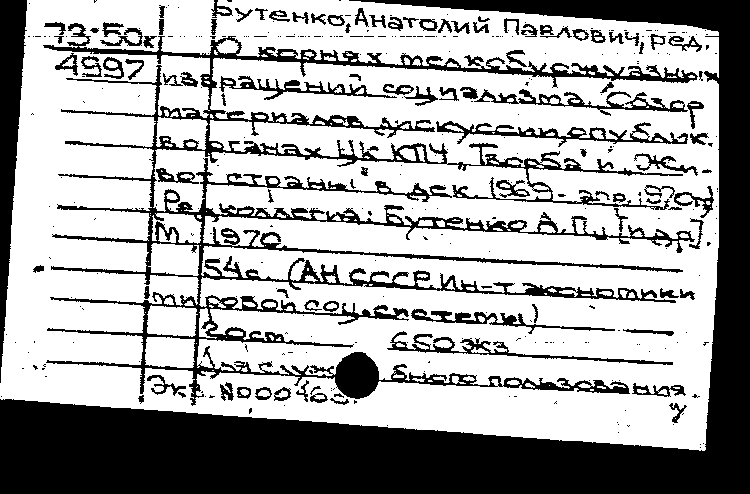 Бутенко, Анатолий Павлович, ред.
73-50к
4997
О корнях мелкобуржуазных
извращений социализма. Обзор
материалов дискуссии, опублик.
в органах ЦК КПЧ „Творба" и „Жи-
вот страны" в дек. 1969 - апр. 1970гг.
[Редколлегия: Бутенко А.П., [и др].
М., 1970.
54с. (АН СССР. Ин-т экономики
мировой соц. системы)
20ст. 650 экз
Для служебного пользования.
Экз. №000463.